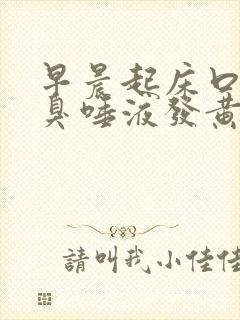 早晨起床口
臭唾液發黃
請叫我小佳佳